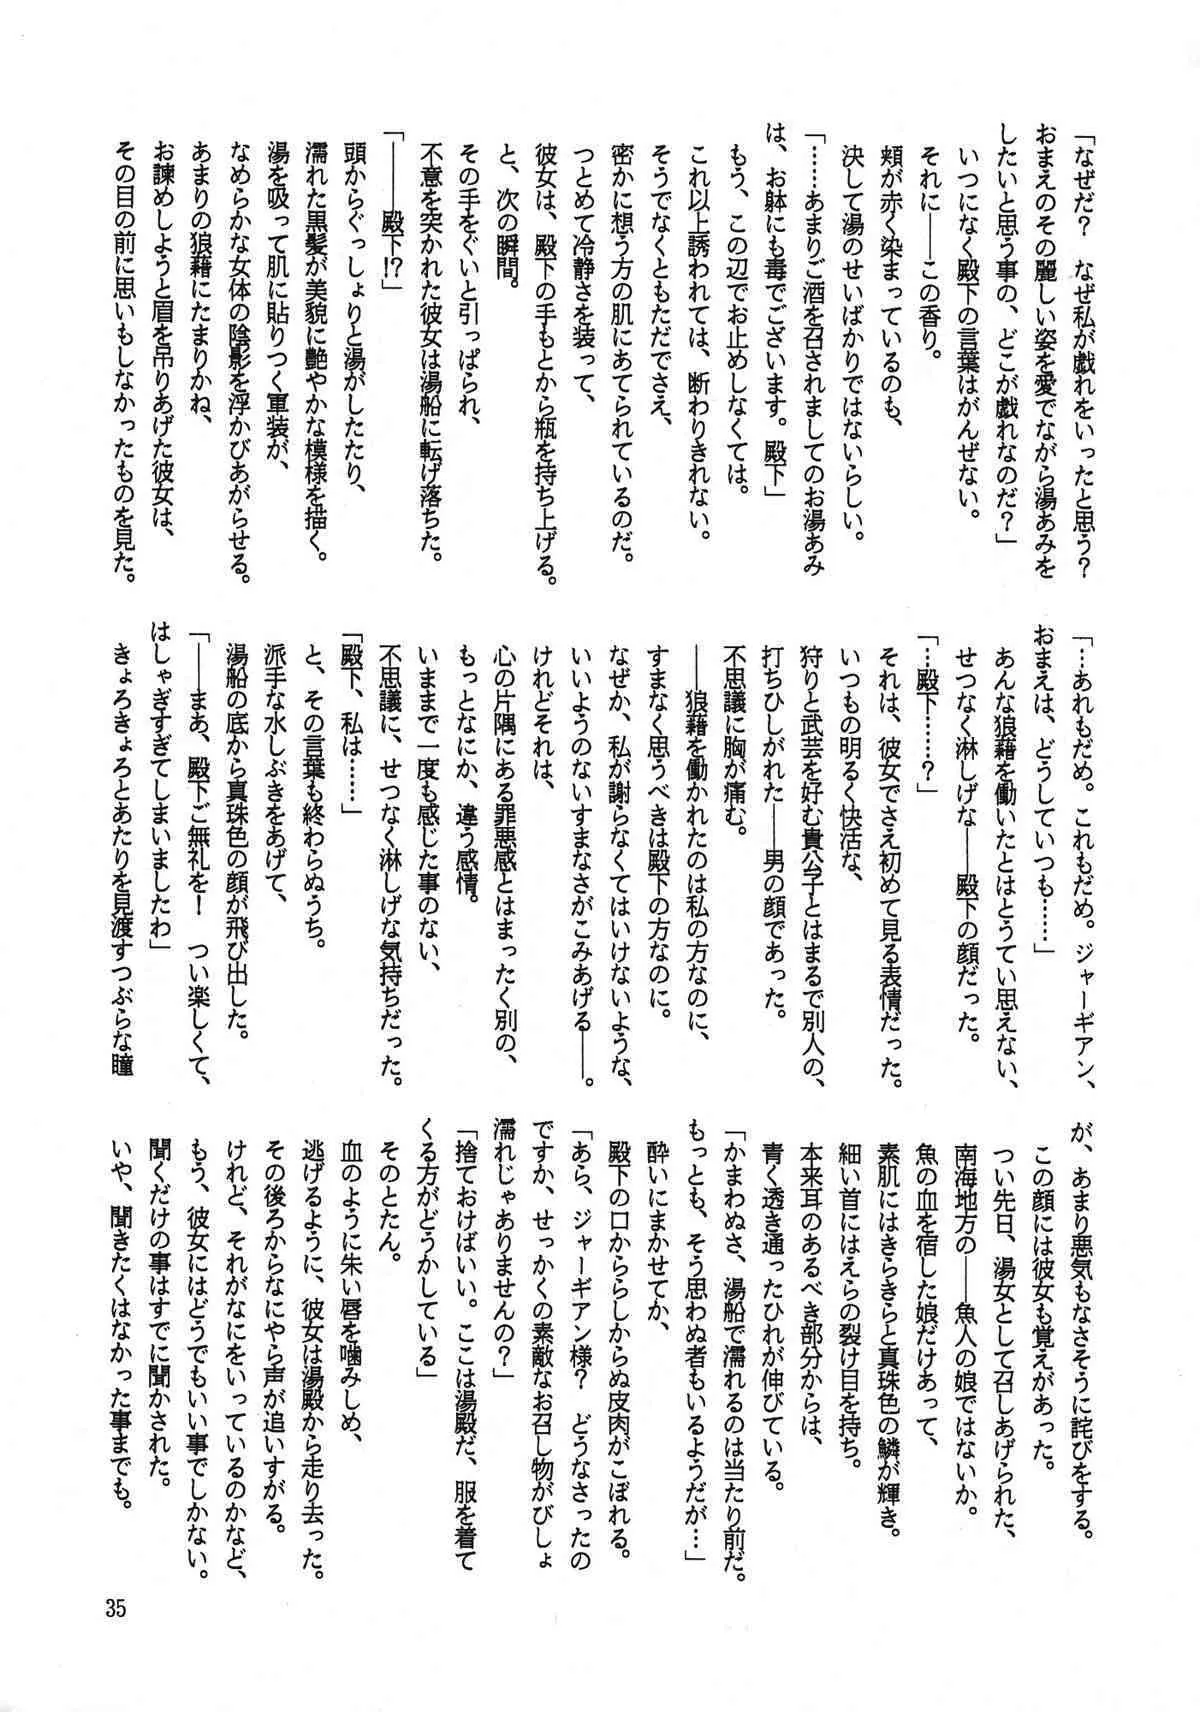 「なぜだ？　なぜ私が戯れをいったと思う？
おまえのその麗しい姿を愛でながら湯あみを
したいと思う事の、どこが戯れなのだ？」
いつになく殿下の言葉はがんぜない。
それに――この香り。
頬が赤く染まっているのも、
決して湯のせいばかりではないらしい。
「……あまりご酒を召されましてのお湯あみ
は、お躰にも毒でございます。殿下」
もう、この辺でお止めしなくては。
これ以上誘われては、断わりきれない。
そうでなくともただでさえ、
密かに想う方の肌にあてられているのだ。
つとめて冷静さを装って、
彼女は、殿下の手もとから瓶を持ち上げる。
と、次の瞬間。
その手をぐいと引っぱられ、
不意を突かれた彼女は湯船に転げ落ちた。
「――殿下!?」
頭からぐっしょりと湯がしたたり、
濡れた黒髪が美貌に艶やかな模様を描く。
湯を吸って肌に貼りつく軍装が、
なめらかな女体の陰影を浮かびあがらせる。
あまりの狼藉にたまりかね、
お諫めしようと眉を吊りあげた彼女は、
その目の前に思いもしなかったものを見た。
「…あれもだめ。これもだめ。ジャーギアン、
おまえは、どうしていつも……」
あんな狼藉を働いたとはとうてい思えない、
せつなく淋しげな――殿下の顔だった。
「…殿下………？」
それは、彼女でさえ初めて見る表情だった。
いつもの明るく快活な、
狩りと武芸を好む貴公子とはまるで別人の、
打ちひしがれた――男の顔であった。
不思議に胸が痛む。
――狼藉を働かれたのは私の方なのに、
すまなく思うべきは殿下の方なのに。
なぜか、私が謝らなくてはいけないような、
いいようのないすまなさがこみあげる――。
けれどそれは、
心の片隅にある罪悪感とはまったく別の、
もっとなにか、違う感情。
いままで一度も感じた事のない、
不思議に、せつなく淋しげな気持ちだった。
「殿下、私は……」
と、その言葉も終わらぬうち。
派手な水しぶきをあげて、
湯船の底から真珠色の顔が飛び出した。
「――まあ、殿下ご無礼を！　つい楽しくて、
はしゃぎすぎてしまいましたわ」
きょろきょろとあたりを見渡すつぶらな瞳
が、あまり悪気もなさそうに詫びをする。
この顔には彼女も覚えがあった。
つい先日、湯女として召しあげられた、
南海地方の――魚人の娘ではないか。
魚の血を宿した娘だけあって、
素肌にはきらきらと真珠色の鱗が輝き。
細い首にはえらの裂け目を持ち。
本来耳のあるべき部分からは、
青く透き通ったひれが伸びている。
「かまわぬさ、湯船で濡れるのは当たり前だ。
もっとも、そう思わぬ者もいるようだが…」
酔いにまかせてか、
殿下の口かららしからぬ皮肉がこぼれる。
「あら、ジャーギアン様？　どうなさったの
ですか、せっかくの素敵なお召し物がびしょ
濡れじゃありませんの？」
「捨ておけばいい。ここは湯殿だ、服を着て
くる方がどうかしている」
そのとたん。
血のように朱い唇を噛みしめ、
逃げるように、彼女は湯殿から走り去った。
その後ろからなにやら声が追いすがる。
けれど、それがなにをいっているのかなど、
もう、彼女にはどうでもいい事でしかない。
聞くだけの事はすでに聞かされた。
いや、聞きたくはなかった事までも。
35